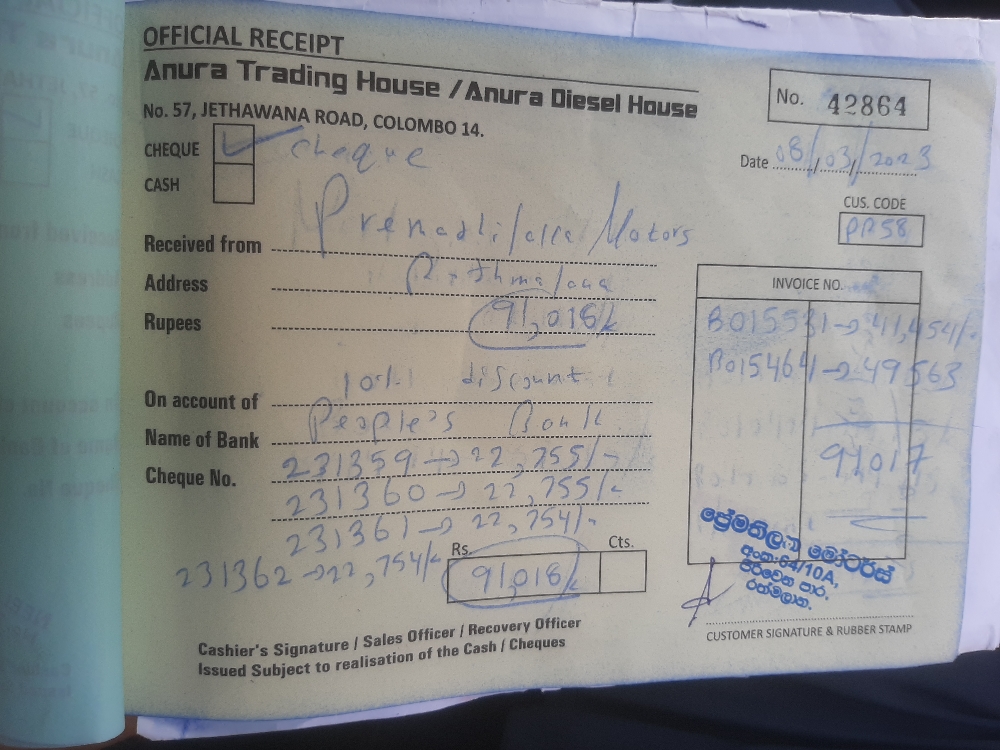 OFFICIAL RECEIPT
Anura Trading House / Anura Diesel House
No. 57, JETHAWANA ROAD, COLOMBO 14.
No. 42864
CHEQUE ✓ cheque
CASH
Date 08/03/2023
CUS. CODE
PR58
Received from Premathilaka Motors
Address Rathmalana
Rupees 91,018/-
INVOICE NO.
B015531→41,454/-
B015464→49563
91017
On account of 10%1 discount
Name of Bank People's Bank
Cheque No. 231359→22,755/-
231360→22,755/-
231361→22,754/-
231362→22,754/-
Rs. Cts.
91,018/-
ප්‍රේමතිලක මෝටර්ස්
අංක:64/10A,
පිරිවෙන පාර,
රත්මලාන.
CUSTOMER SIGNATURE & RUBBER STAMP
Cashier's Signature / Sales Officer / Recovery Officer
Issued Subject to realisation of the Cash / Cheques